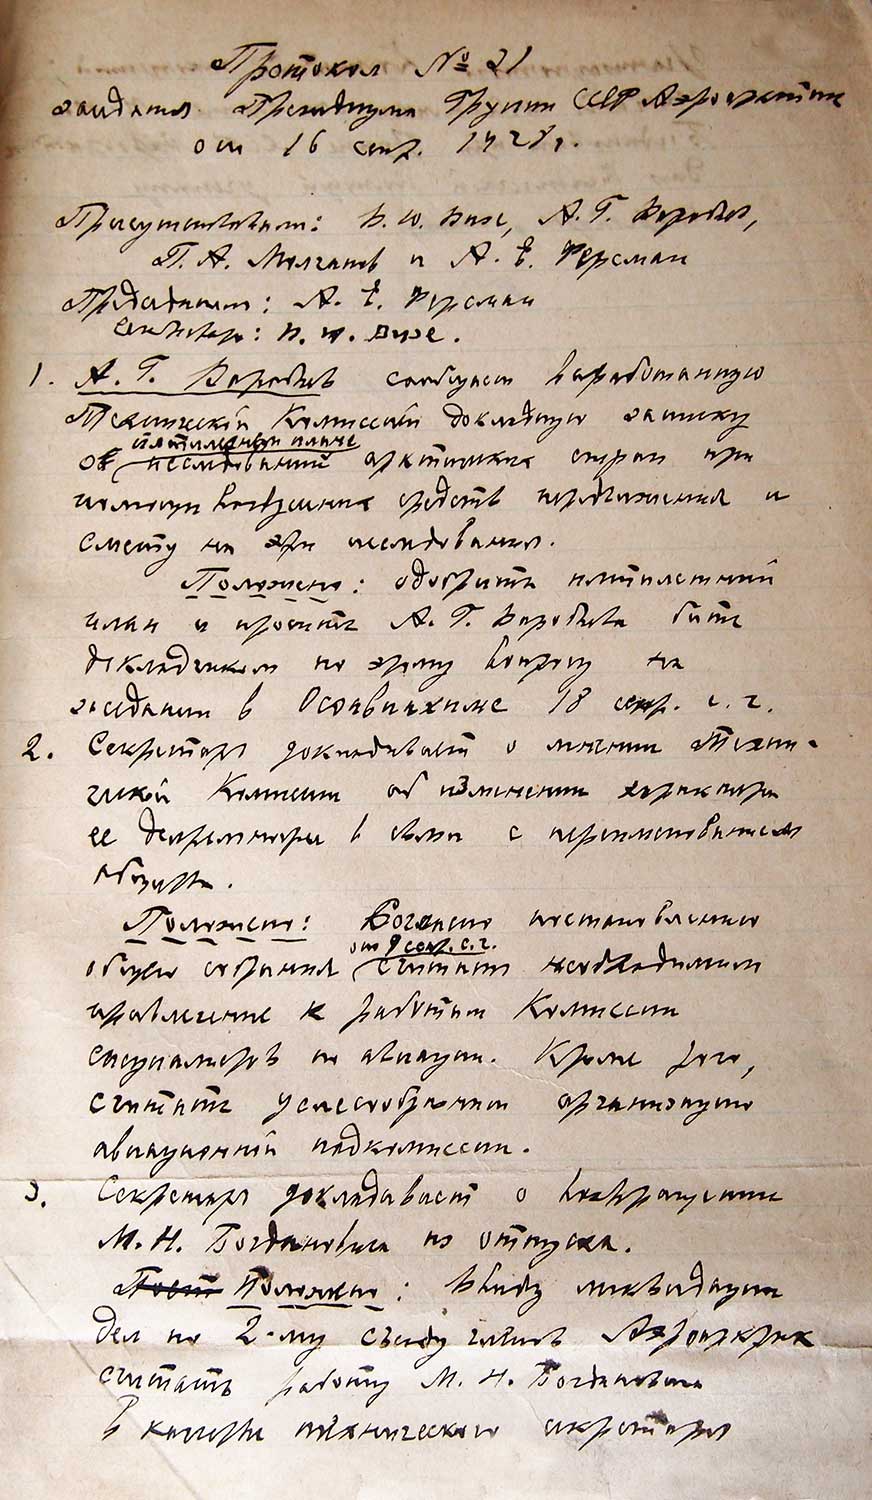 Протокол № 21
заседания Президиума Группы СССР Аэроарктик
от 16 сент. 1928 г.
Присутствовали: В. Ю. Визе, А. Г. Воробьев,
П. А. Молчанов и А. Е. Ферсман
Председатель: А. Е. Ферсман
Секретарь: В. Ю. Визе.
1. А. Г. Воробьев сообщает выработанную
Технической Комиссией докладную записку
пятилетнем плане
об исследований арктических стран при
помощи воздушных средств передвижения и
смету на эти исследования.
Положено: одобрить пятилетний
план и просить А. Г. Воробьева быть
докладчиком по этому вопросу на
заседании в Осоавиахиме 18 сент. с. г.
2. Секретарь докладывает о мнении Техни-
ческой Комиссии об изменении характера
ее деятельности в связи с переименованием
общества.
Положено: Согласно постановлению
от 9 сент. с. г.
общего собрания считать необходимым
привлечение к работам Комиссии
специалистов по авиации. Кроме того,
считать целесообразным организацию
авиационной подкомиссии.
3. Секретарь докладывает о возвращении
М. Н. Богдановича из отпуска.
Положено: Ввиду ликвидации
дел по 2-му съезду членов Аэроарктик
считать работу М. Н. Богдановича
в качестве технического секретаря